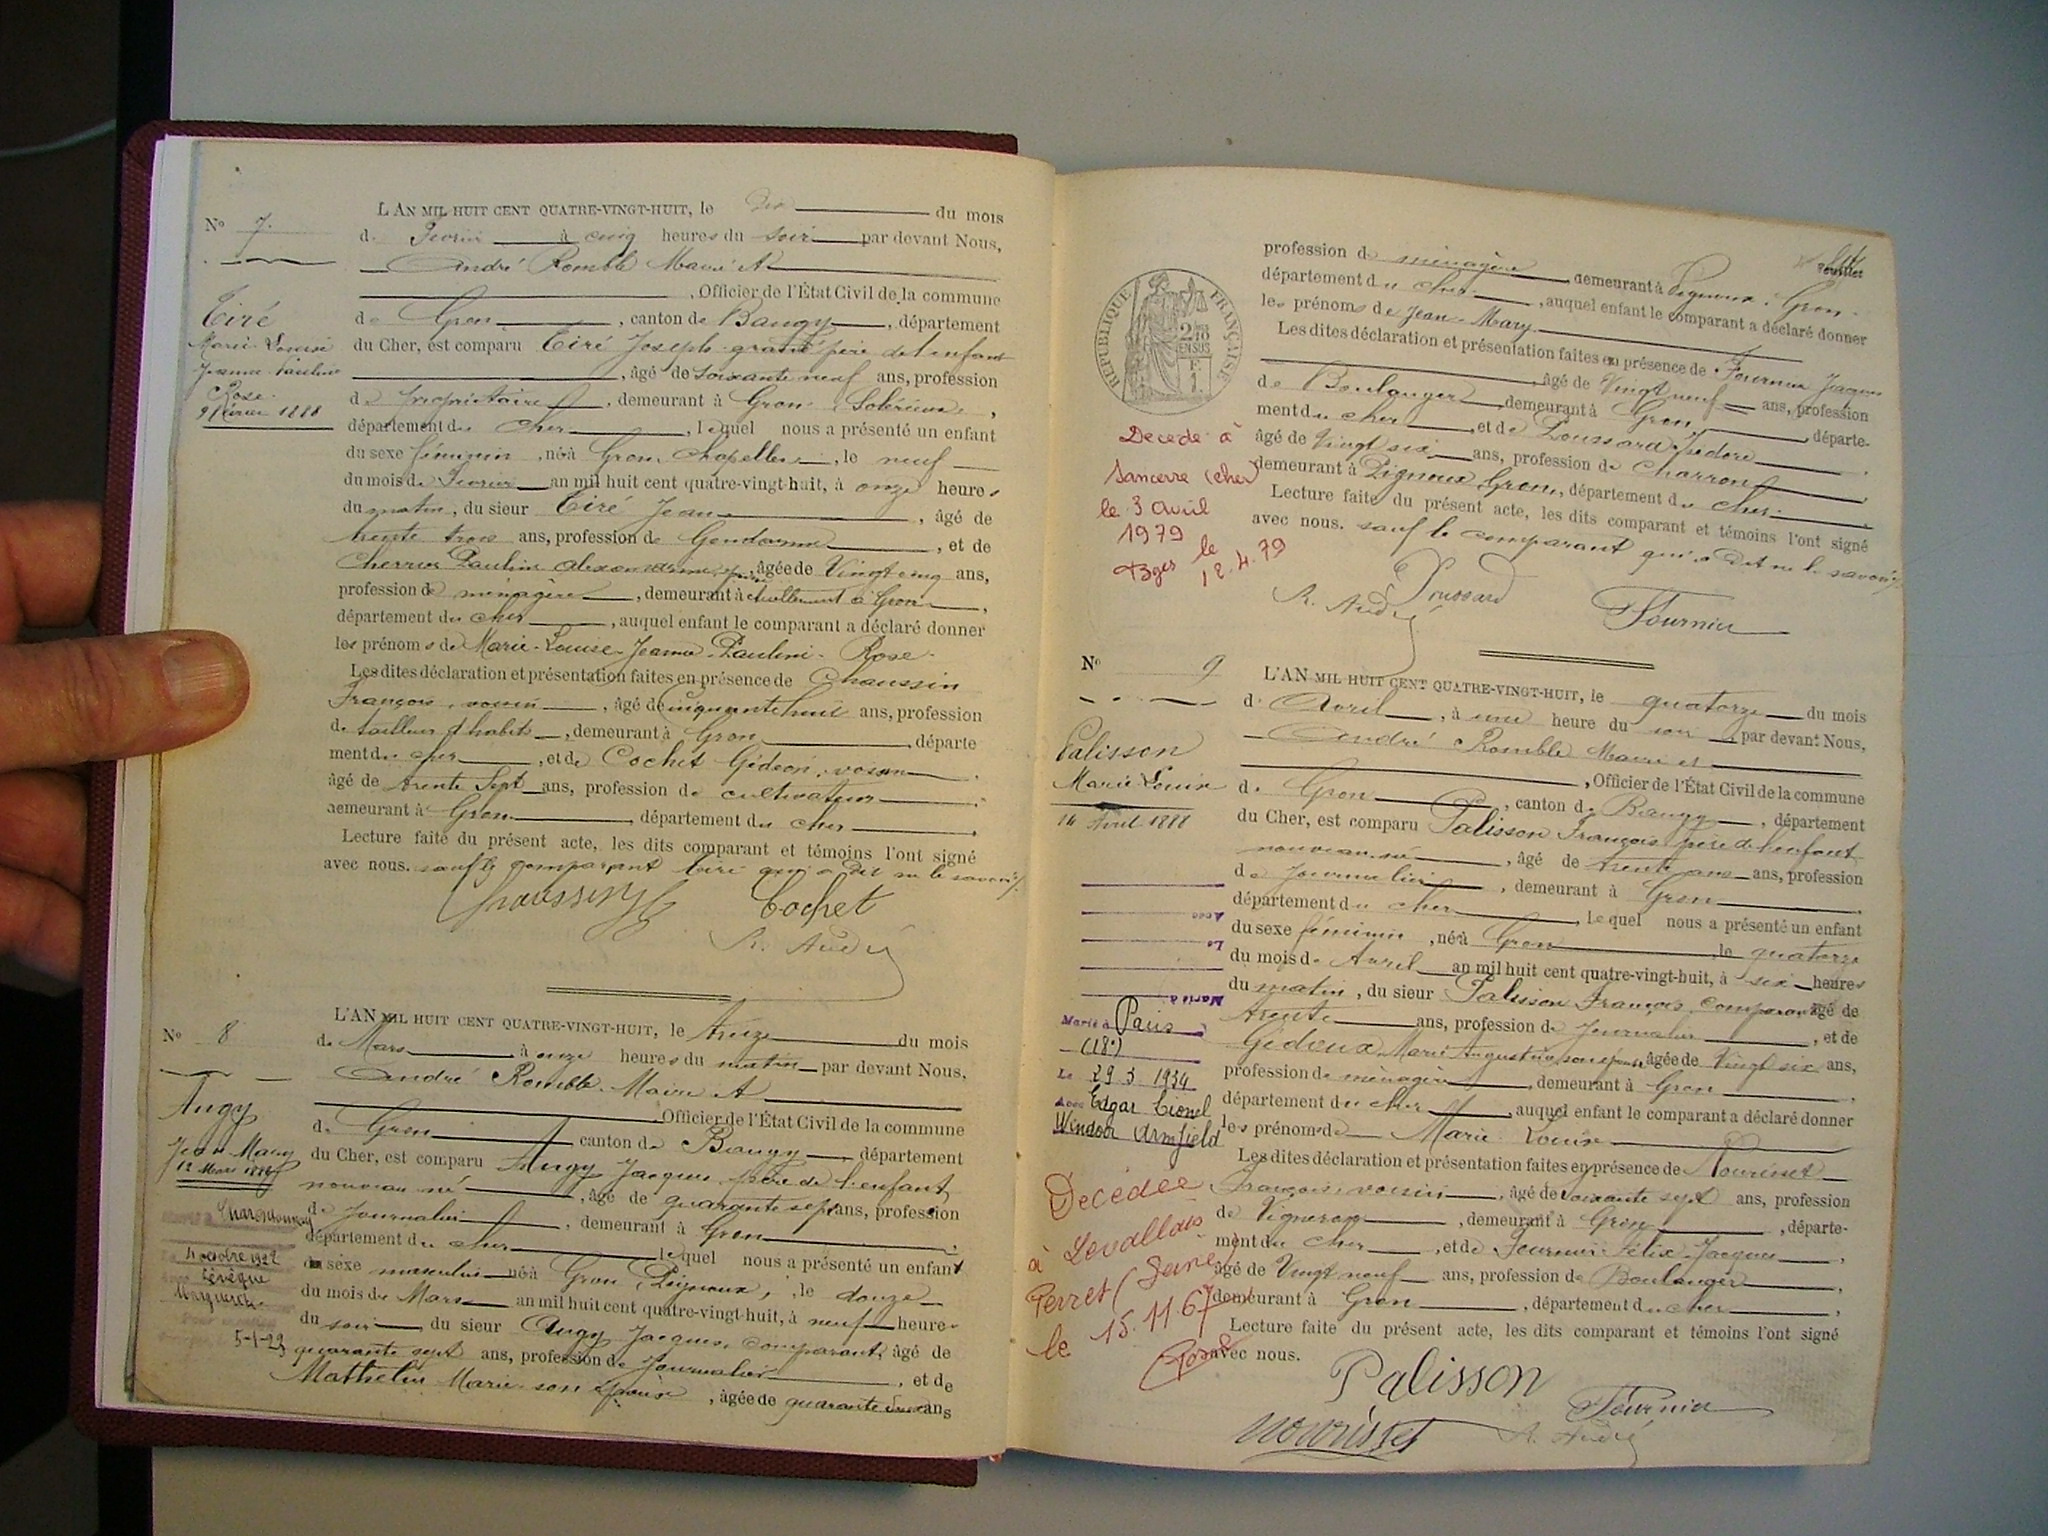 L'AN MIL HUIT CENT QUATRE-VINGT-HUIT, le Dix du mois
No 7.
de Février à cinq heures du soir par devant Nous,
André Romble Maire et
, Officier de l'État Civil de la commune
Tiré
Marie Louise
Jeanne Pauline
Rose
9 février 1888
de Gron , canton de Baugy , département
du Cher, est comparu Tiré Joseph grand père de l'enfant
, âgé de soixante neuf ans, profession
de propriétaire , demeurant à Gron ,
département du Cher , lequel nous a présenté un enfant
du sexe féminin , né à Gron , le neuf
du mois de Février an mil huit cent quatre-vingt-huit, à onze heures
du matin, du sieur Tiré Jean , âgé de
trente trois ans, profession de Gendarme , et de
Cherrier Pauline , âgée de Vingt cinq ans,
profession de ménagère , demeurant à actuellement à Gron ,
département du cher , auquel enfant le comparant a déclaré donner
les prénoms de Marie-Louise-Jeanne-Pauline-Rose.
Les dites déclaration et présentation faites en présence de Chaussin
François, voisin , âgé de Cinquante huit ans, profession
de tailleur d'habits , demeurant à Gron , départe
ment du cher , et de Cochet Gédéon, voisin ,
âgé de trente sept ans, profession de cultivateur ,
demeurant à Gron , département du cher ,
Lecture faite du présent acte, les dits comparant et témoins l'ont signé
avec nous. sauf le comparant Tiré qui a dit ne le savoir
Chaussin Cochet
R. André
L'AN MIL HUIT CENT QUATRE-VINGT-HUIT, le treize du mois
No 8
de Mars à onze heures du matin par devant Nous,
André Romble Maire et
Officier de l'État Civil de la commune
Augy
Jean Mary
12 Mars 1888
de Gron canton de Baugy , département
du Cher, est comparu Augy Jacques, père de l'enfant
nouveau né , âgé de quarante sept ans, profession
de Journalier , demeurant à Gron ,
département du cher lequel nous a présenté un enfant
4 octobre 1922
Lévêque
Marguerite
5-1-23
du sexe masculin né à Gron (Pigneux) , le douze
du mois de Mars an mil huit cent quatre-vingt-huit, à neuf heures
du soir du sieur Augy Jacques, comparant, âgé de
quarante sept ans, profession de Journalier , et de
Mathelin Marie son épouse , âgée de quarante deux ans
profession de ménagère , demeurant à Pigneux, Gron
feuillet
département du cher , auquel enfant le comparant a déclaré donner
les prénoms de Jean-Mary
Les dites déclaration et présentation faites en présence de Fournier Jacques
, âgé de Vingt neuf ans, profession
de Boulanger demeurant à Gron , départe-
ment du cher , et de Poussard Isidore ,
âgé de Vingt six ans, profession de Charron ,
demeurant à Pigneux, Gron, département du cher
Lecture faite du présent acte, les dits comparant et témoins l'ont signé
avec nous. sauf le comparant qui a dit ne le savoir
RÉPUBLIQUE FRANÇAISE
2/10 EN SUS
F.
1.
Décédé à
Sancerre (cher)
le 3 avril
1979
Bges le
12.4.79
Poussard
R. André Fournier
No 9
L'AN MIL HUIT CENT QUATRE-VINGT-HUIT, le quatorze du mois
d'Avril , à une heure du soir par devant Nous,
André Romble Maire et
, Officier de l'État Civil de la commune
Palisson
Marie Louise
14 Avril 1888
de Gron , canton de Baugy , département
du Cher, est comparu Palisson François père de l'enfant
nouveau né , âgé de trente ans ans, profession
de Journalier , demeurant à Gron
département du cher , lequel nous a présenté un enfant
du sexe féminin , né à Gron , le quatorze
du mois de Avril an mil huit cent quatre-vingt-huit, à six heures
du matin , du sieur Palisson François, comparant âgé de
trente ans, profession de Journalier , et de
Gidoux Marie Augustine son épouse, âgée de Vingt six ans,
profession de ménagère , demeurant à Gron ,
département du cher , auquel enfant le comparant a déclaré donner
les prénoms de Marie Louise
Marié à Paris
(18e)
Le 29 3 1934
Avec Edgar Lionel
Windoor Armfield
Les dites déclaration et présentation faites en présence de Nourisset
François, voisin , âgé de soixante sept ans, profession
de Vigneron , demeurant à Gron , départe-
ment du cher , et de Fournier Félix-Jacques ,
âgé de Vingt neuf ans, profession de Boulanger ,
demeurant à Gron , département du cher ,
Lecture faite du présent acte, les dits comparant et témoins l'ont signé
avec nous.
Décédée
à Levallois
Perret (Seine)
le 15.11.67
Palisson
Fournier
Nourisset R. André